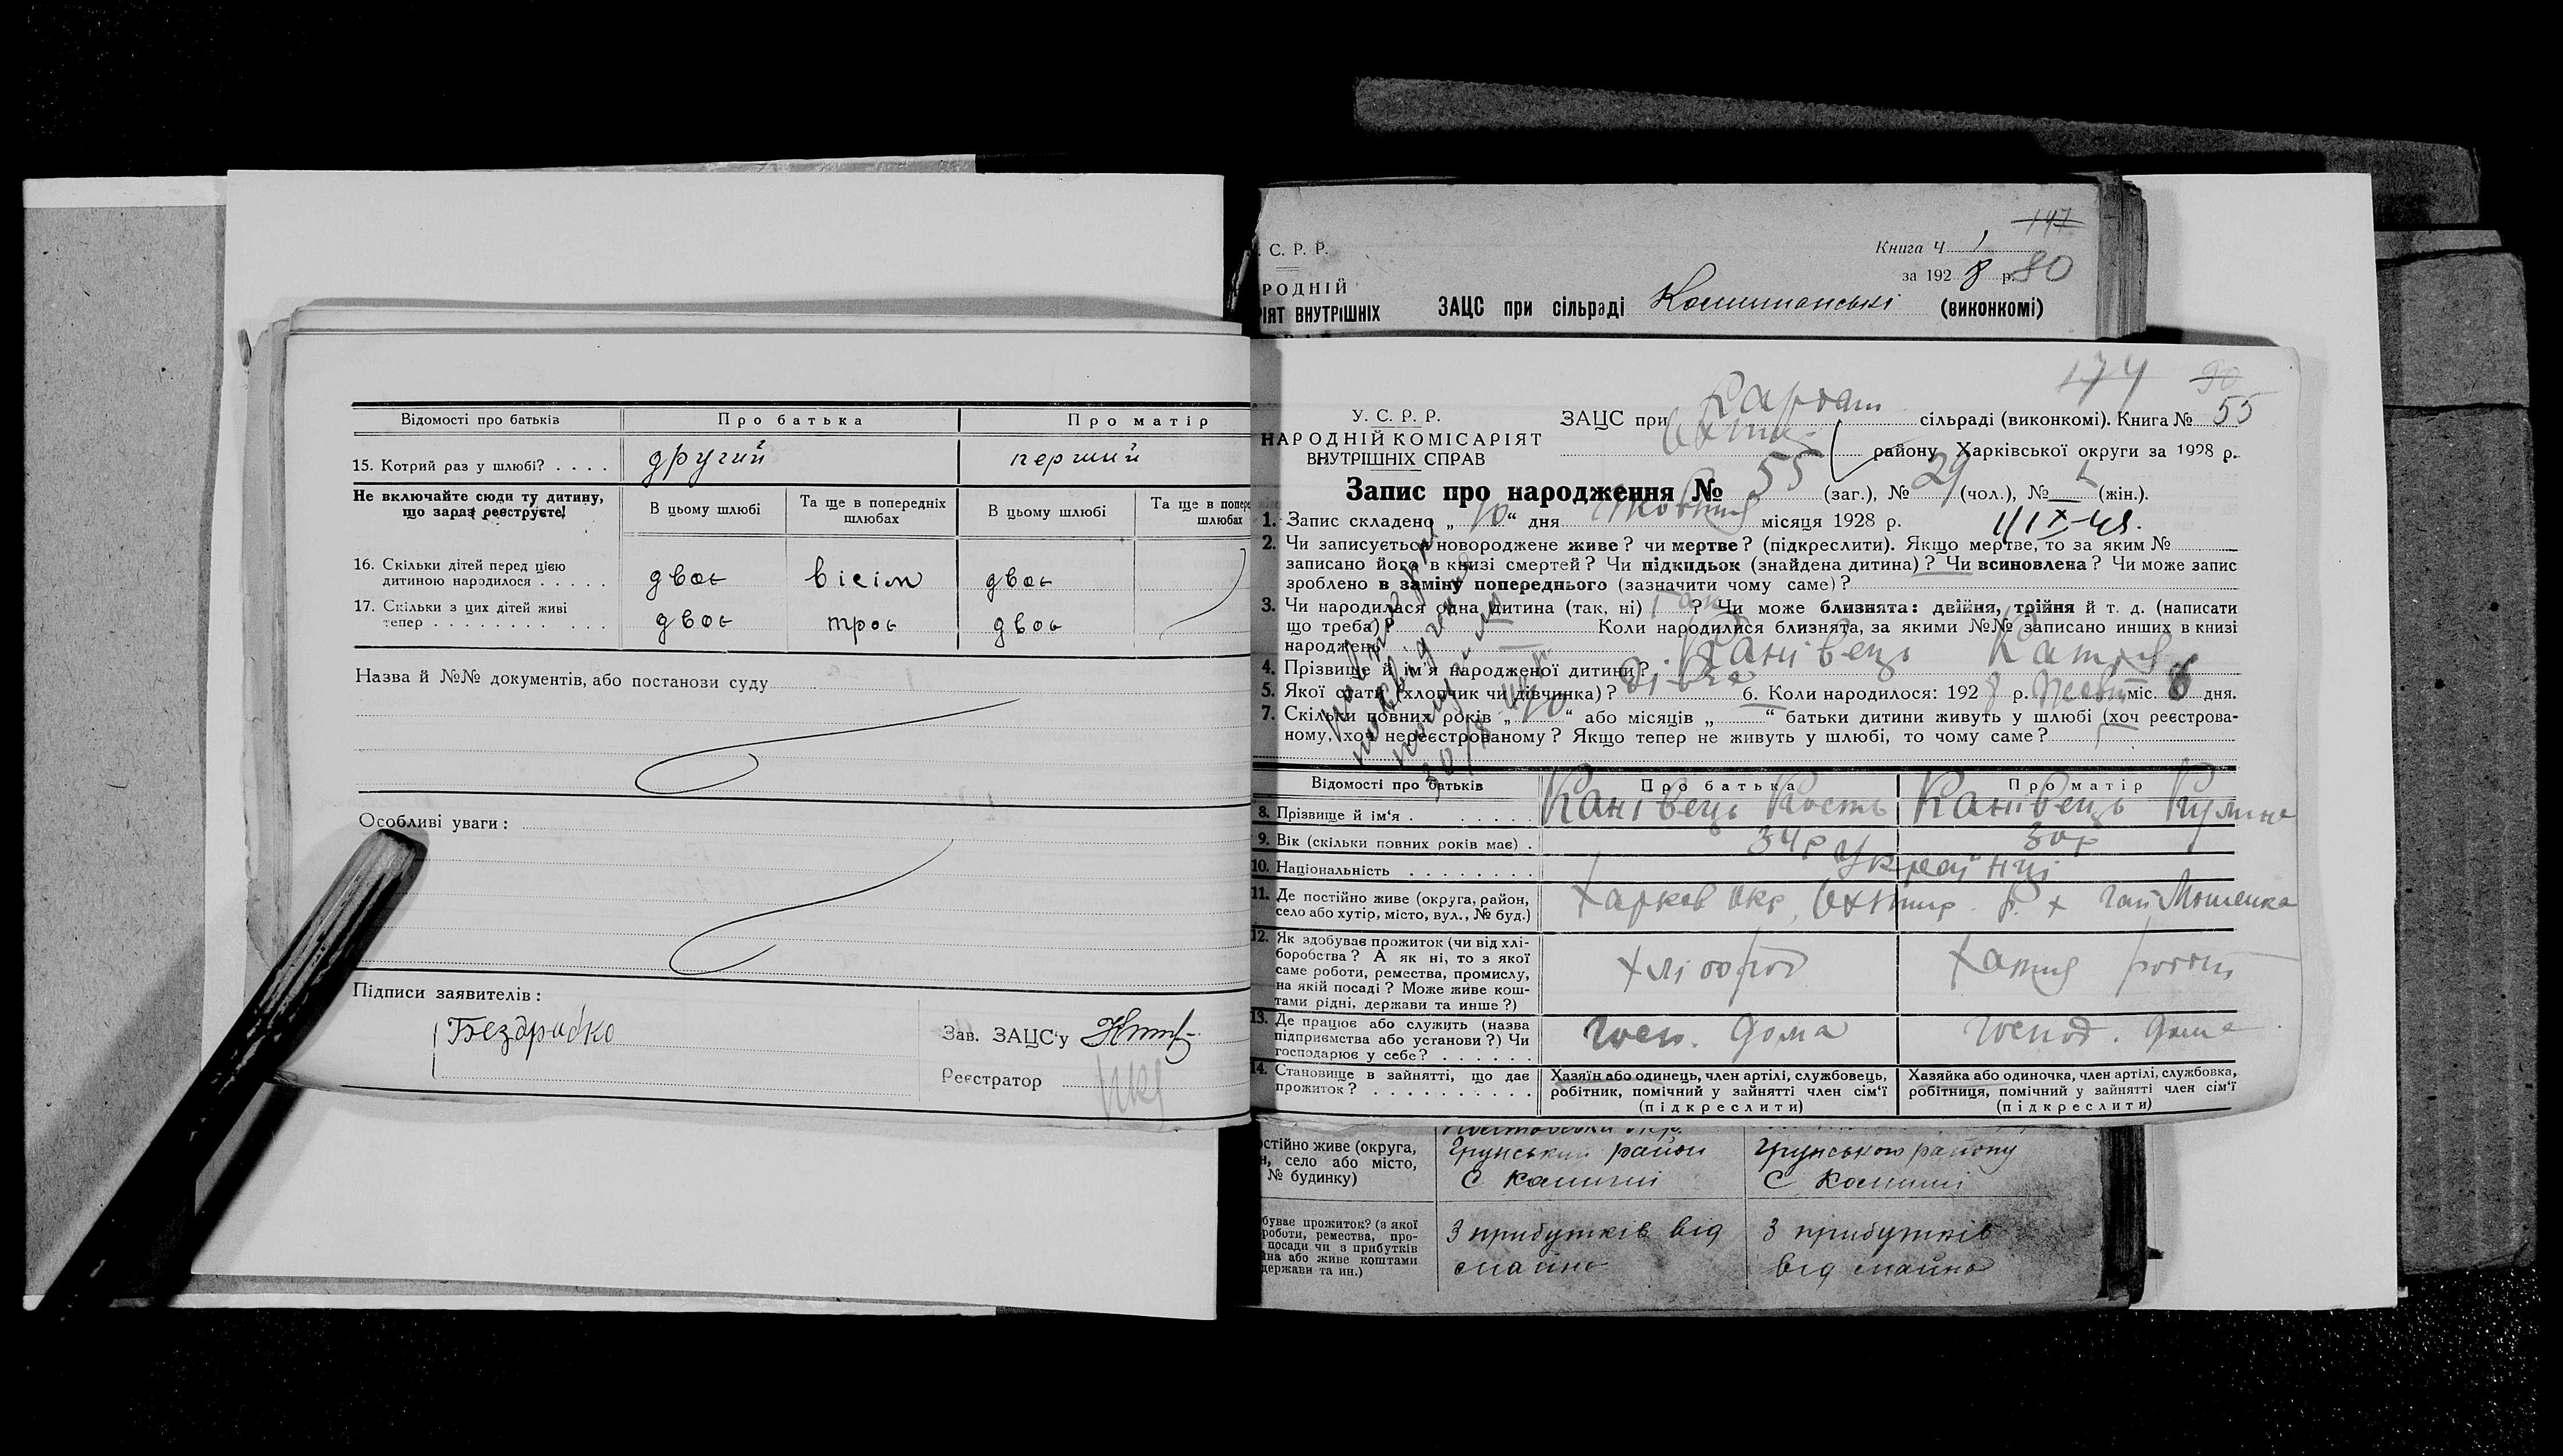 Відомості про батьків
Про батька
Про матір
15. Котрий раз у шлюбі? . . . .
другий
перший
Не включайте сюди ту дитину,
що зараз реєструєте!
В цьому шлюбі
Та ще в попередніх
шлюбах
В цьому шлюбі
Та ще в попере
шлюбах
16. Скільки дітей перед цією
дитиною народилося . . . . .
двоє
вісім
двоє
17. Скільки з цих дітей живі
тепер . . . . . . . . . . .
двоє
троє
двоє
Назва й №№ документів, або постанови суду
Особливі уваги:
Підписи заявителів:
Бездрабко
Зав. ЗАЦС'у
Реєстратор
147
. С. Р. Р.
Книга Ч 1
за 192 8 р. 80
РОДНІЙ
ІЯТ ВНУТРІШНІХ
ЗАЦС при сільраді
(виконкомі)
174 90
У. С. Р. Р.
НАРОДНІЙ КОМІСАРІЯТ
ВНУТРІШНІХ СПРАВ
ЗАЦС при сільраді (виконкомі). Книга № 55
району Харківської округи за 1928 р.
Запис про народження № 55 (заг.), № 29 (чол.), № (жін.).
1. Запис складено „ 10 “ дня Жовтня місяця 1928 р.
2. Чи записується новороджене живе? чи мертве? (підкреслити). Якщо мертве, то за яким №
записано його в книзі смертей? Чи підкидьок (знайдена дитина)? Чи всиновлена? Чи може запис
зроблено в заміну попереднього (зазначити чому саме)?
3. Чи народилася одна дитина (так, ні) так ? Чи може близнята: двійня, трійня й т. д. (написати
що треба)? Коли народилися близнята, за якими №№ записано инших в книзі
народжень
4. Прізвище й ім'я народженої дитини? Канівець Катря
5. Якої статі (хлопчик чи дівчинка)? дівча 6. Коли народилося: 192 8 р. міс. 6 дня.
7. Скільки повних років „ “ або місяців „ “ батьки дитини живуть у шлюбі (хоч реєстрова-
ному, хоч нереєстрованому? Якщо тепер не живуть у шлюбі, то чому саме?
Відомості про батьків
Про батька
Про матір
8. Прізвище й ім'я . . . . . .
Канівець Кость
Канівець Кулина
9. Вік (скільки повних років має) .
34р
30р
10. Національність . . . . . . . .
Українці
11. Де постійно живе (округа, район,
село або хутір, місто, вул., № буд.)
Харков окр, Охтир. р. х гай Мошенка
12. Як здобуває прожиток (чи від хлі-
боробства? А як ні, то з якої
саме роботи, ремества, промислу,
на якій посаді? Може живе кош-
тами рідні, держави та инше?)
хлібороб
Хатня робот
13. Де працює або служить (назва
підприємства або установи?) Чи
господарює у себе? . . . . . .
госп. дома
господ. дома
14. Становище в зайнятті, що дає
прожиток? . . . . . . . . . .
Хазяїн або одинець, член артілі, службовець,
робітник, помічний у зайнятті член сім'ї
(підкреслити)
Хазяйка або одиночка, член артілі, службовка,
робітниця, помічний у зайнятті член сім'ї
(підкреслити)
остійно живе (округа,
н, село або місто,
№ будинку)
Грунський район
С Комиші
Грунського району
С Комиші
буває прожиток? (з якої
роботи, ремества, про-
посади чи з прибутків
на або живе коштами
держави та ин.)
З прибутків від
майна
З прибутків
від майна